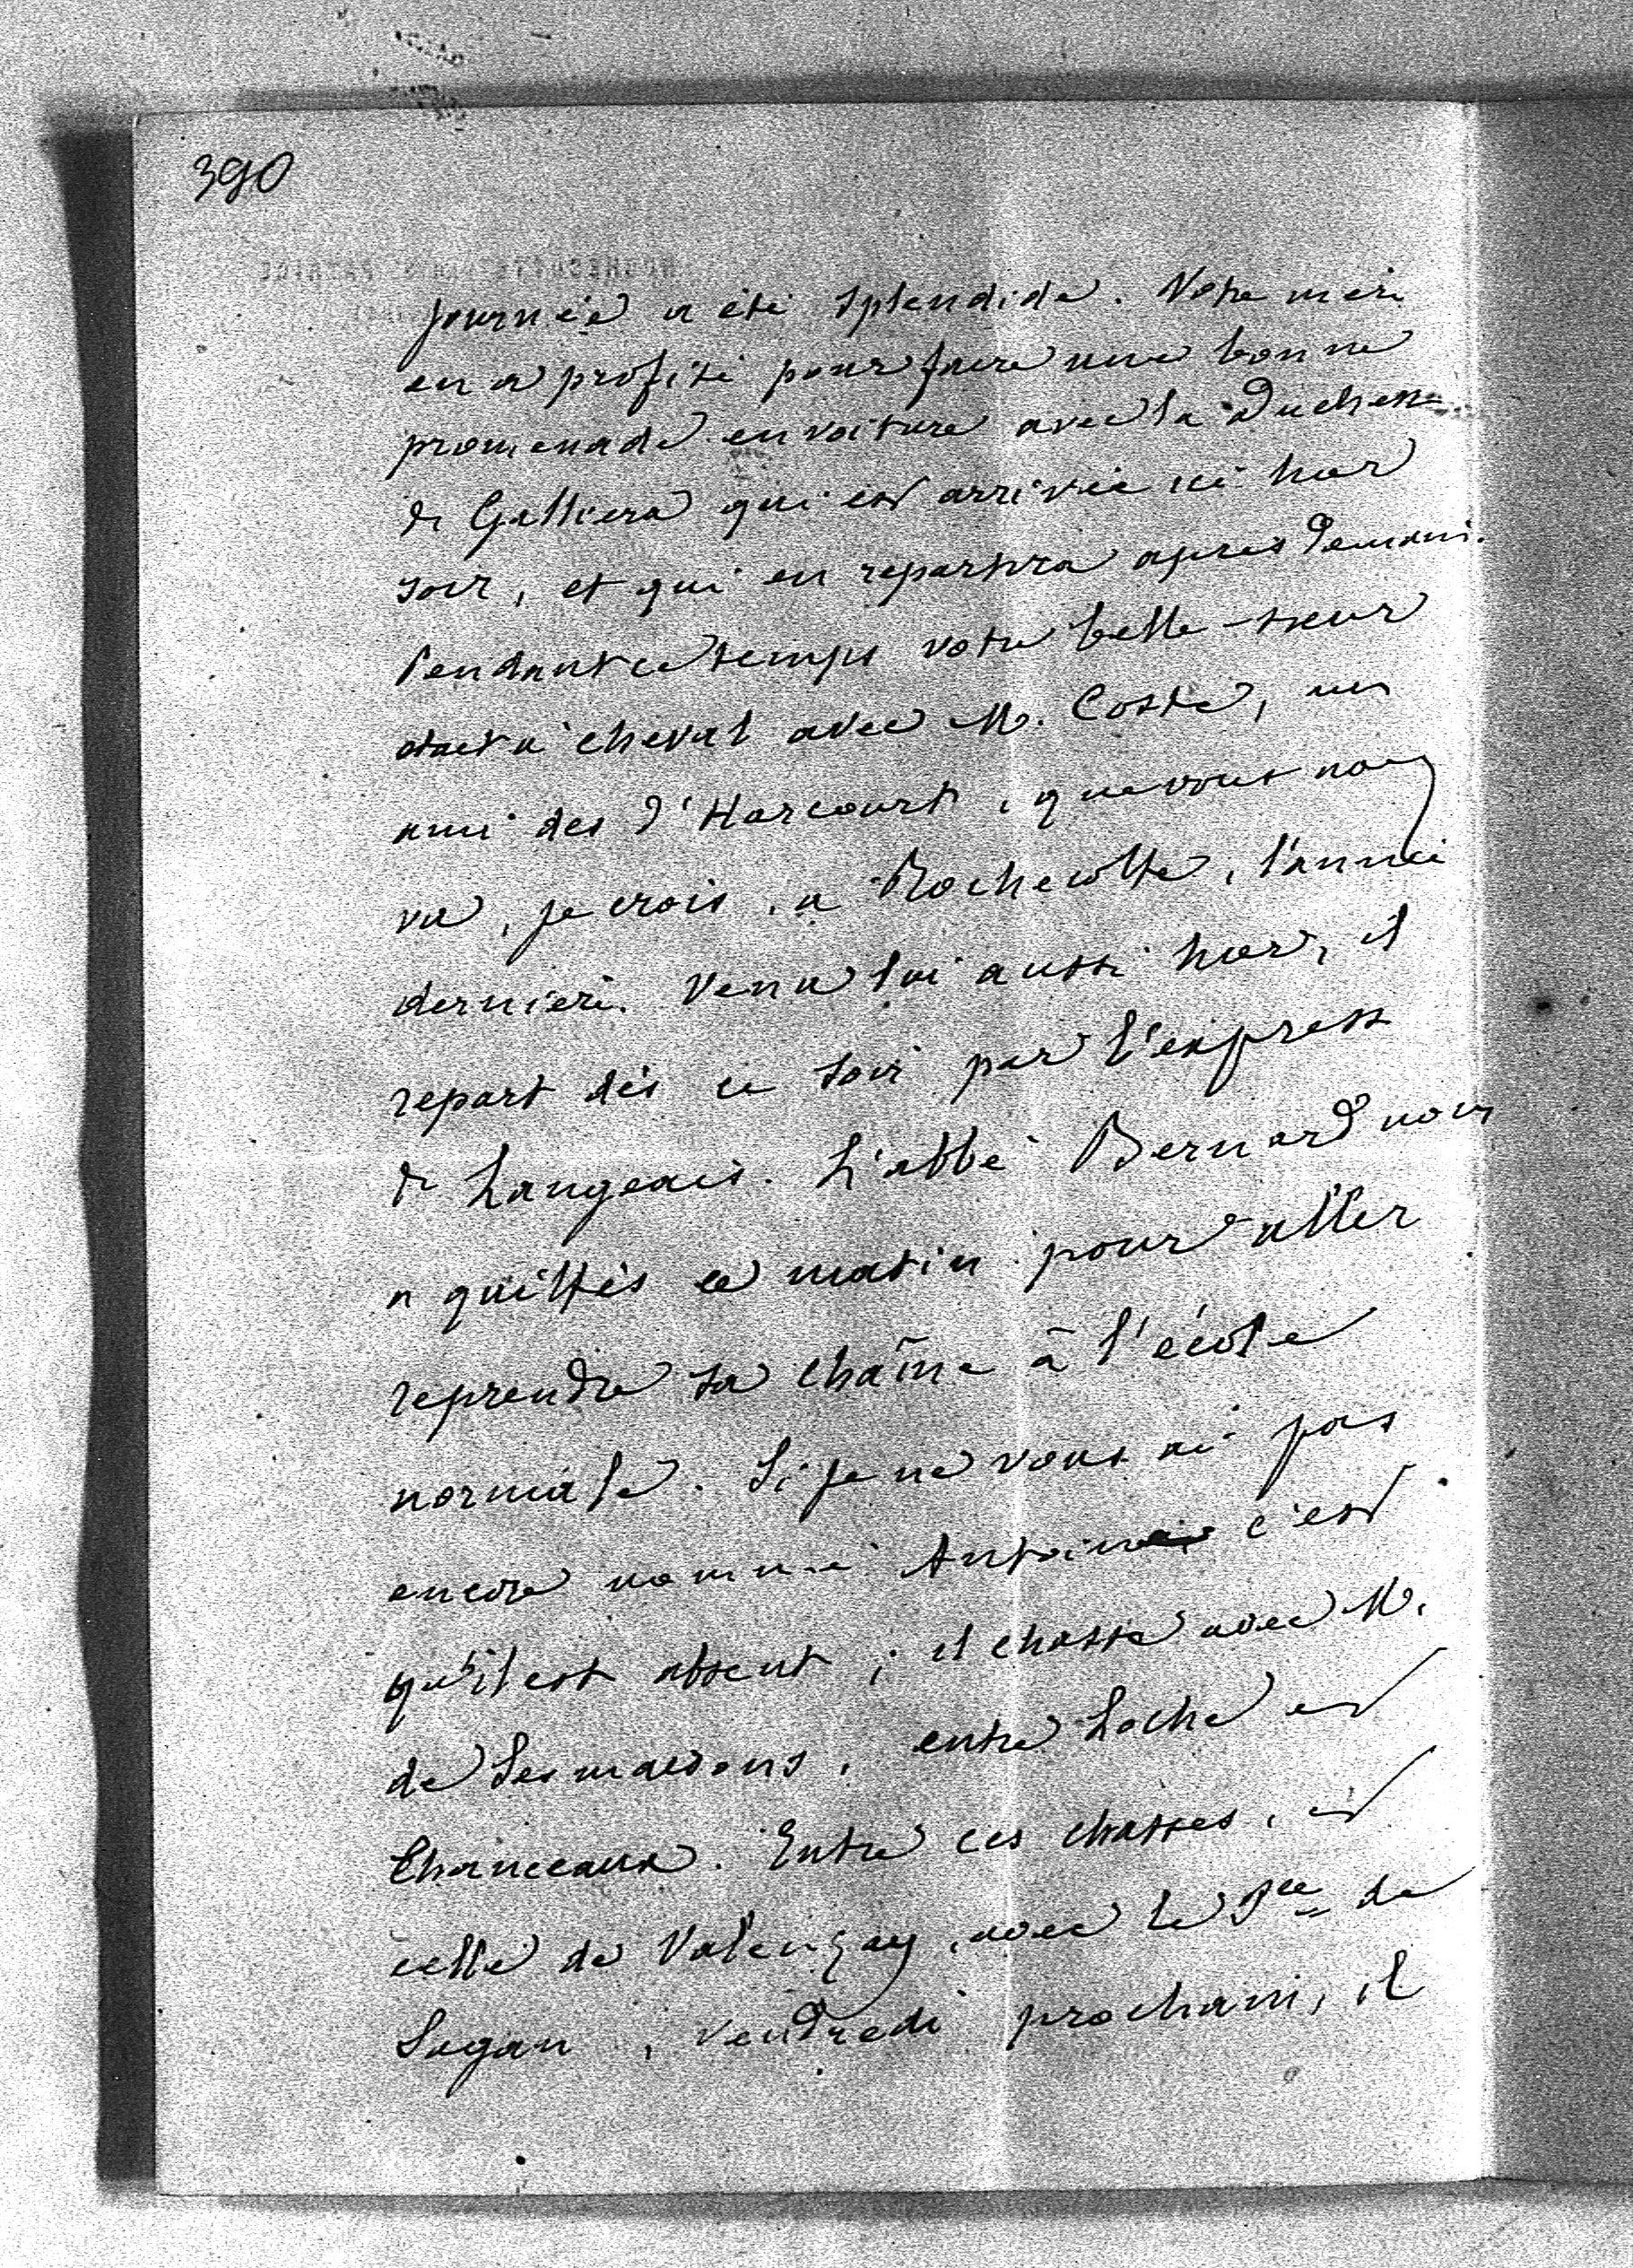 390
journée a été splendide. Votre mère
en a profité pour faire une bonne
promenade en voiture avec la Duchesse
de Galliera qui est arrivée ici hier
soir, et qui en repartira après demain.
Pendant ce temps votre belle-sœur
était à cheval avec M. Coste, un
ami des d'Harcourt, que vous avez
vu, je crois, à Rochecotte, l'année
dernière. Venu lui aussi hier, il
repart dès ce soir par l'express
de Langeais. L'abbé Bernard nous
a quittés ce matin pour aller
reprendre sa chaîne à l'école
normale. Si je ne vous ai pas
encore nommé Antoine c'est
qu'il est absent ; il chasse avec M.
de Lesmaisons, entre Loche et
Chanceaux. Entre ces chasses, et
celle de Valençay, avec le Pce de
Sagan, vendredi prochain, il